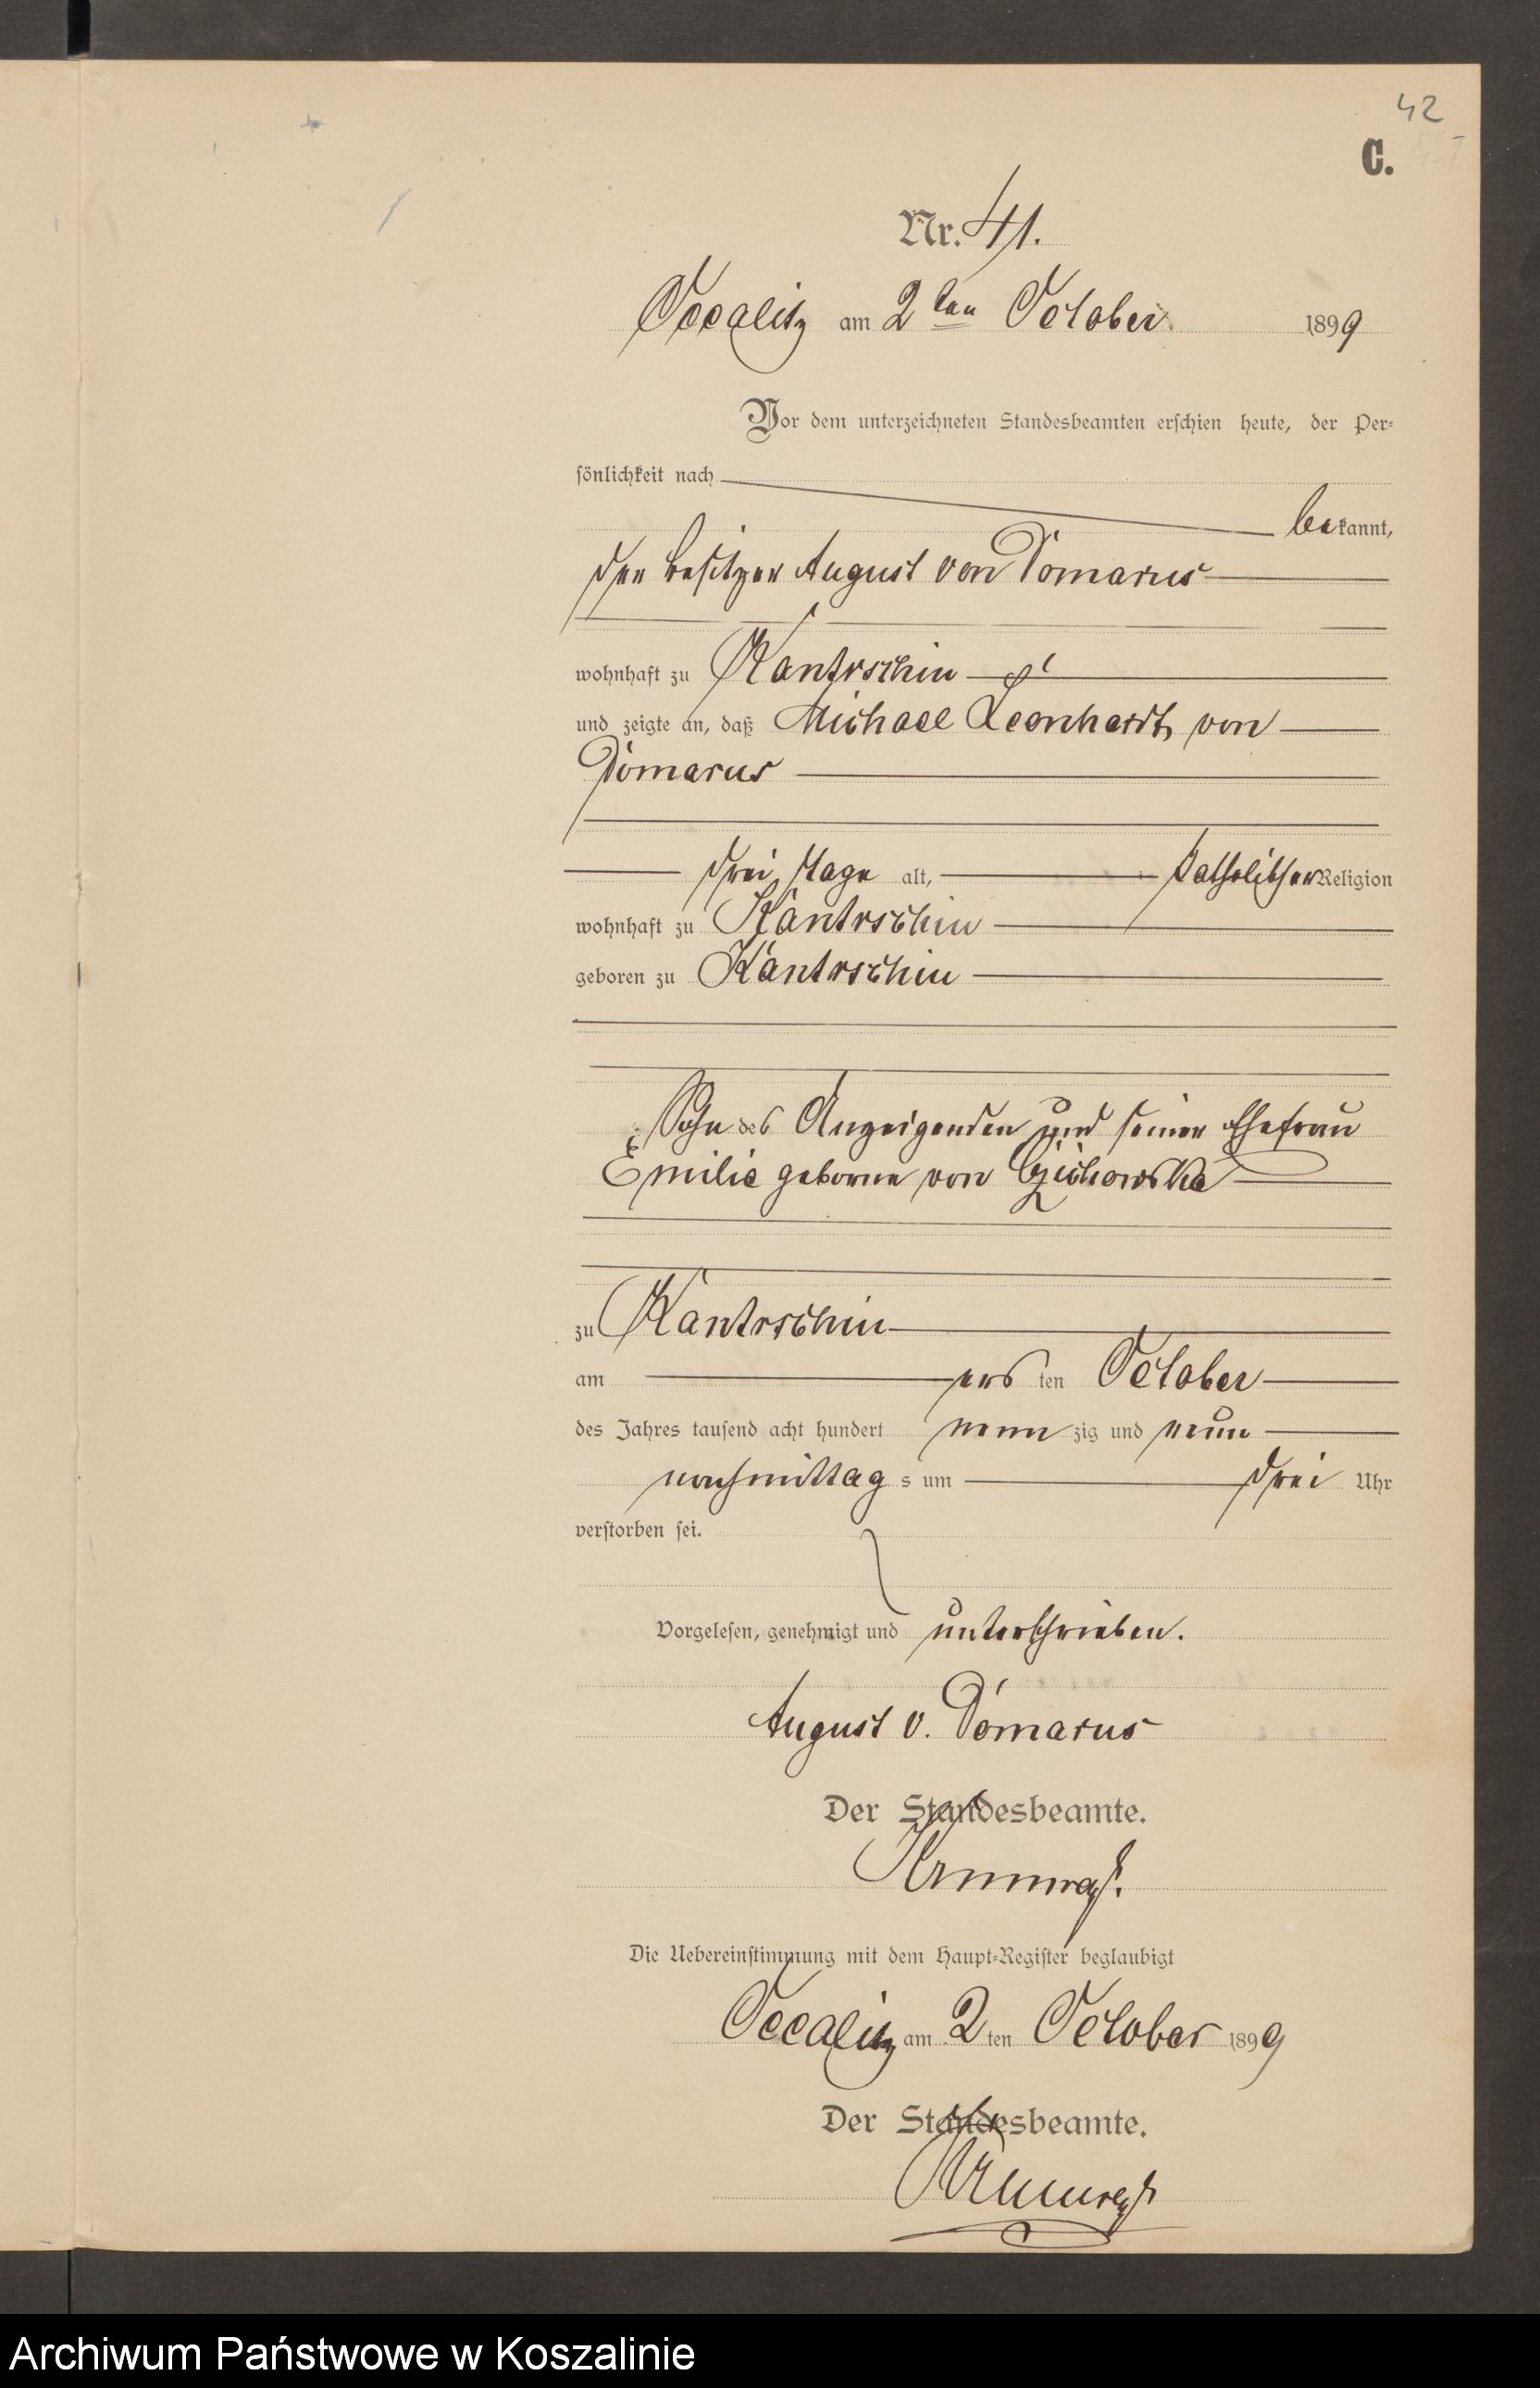 42
C.
Nr. 41.
Occalitz am 2ten October 1899
Vor dem unterzeichneten Standesbeamten erschien heute, der Per-
sönlichkeit nach
bekannt,
der Besitzer August von Domarus
wohnhaft zu Kantrschin
und zeigte an, daß Michael Leonhardt von
Domarus
drei Tage alt, katholischer Religion
wohnhaft zu Kantrschin
geboren zu Kantrschin
Sohn des Anzeigenden und seiner Ehefrau
Emilie geborne von
zu Kantrschin
am ersten October
des Jahres tausend acht hundert neunzig und neun
nachmittags um drei Uhr
verstorben sei.
Vorgelesen, genehmigt und unterschrieben.
August v. Domarus
Der Standesbeamte.
Die Uebereinstimmung mit dem Haupt-Register beglaubigt
Occalitz am 2ten October 1899
Der Standesbeamte.
Archiwum Państwowe w Koszalinie